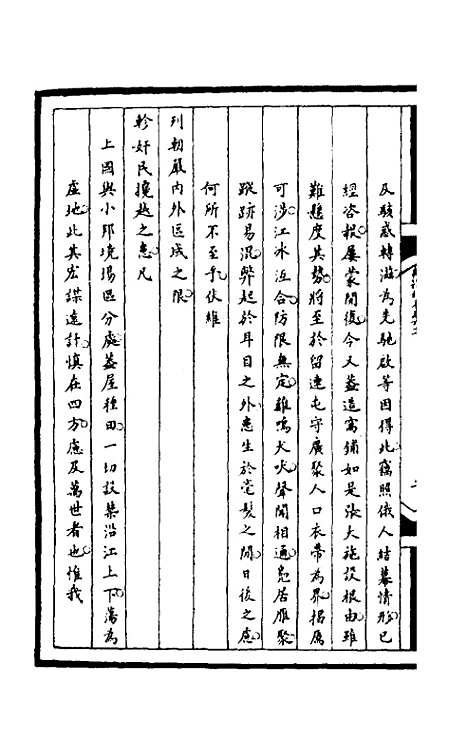 及駭惑轉滋為先馳啟等因得此竊照俄人結幕情形已
經咨報屢蒙開復今又蓋造窩鋪如是張大施設根由雖
難懸度其勢將至於留連屯守廣聚人口衣帶為界揭厲
可涉江氷沍合防限無定雞鳴犬吠聲聞相通鳧居雁聚
蹤跡易混弊起於耳目之外患生於毫髮之間日後之慮
何所不至乎伏維
列朝嚴內外區域之限
軫奸民攙越之患凡
上國與小邦境埸區分處蓋屋種田一切設築沿江上下蕩為
虛地此其宏謨遠計慎在四方慮及萬世者也惟我